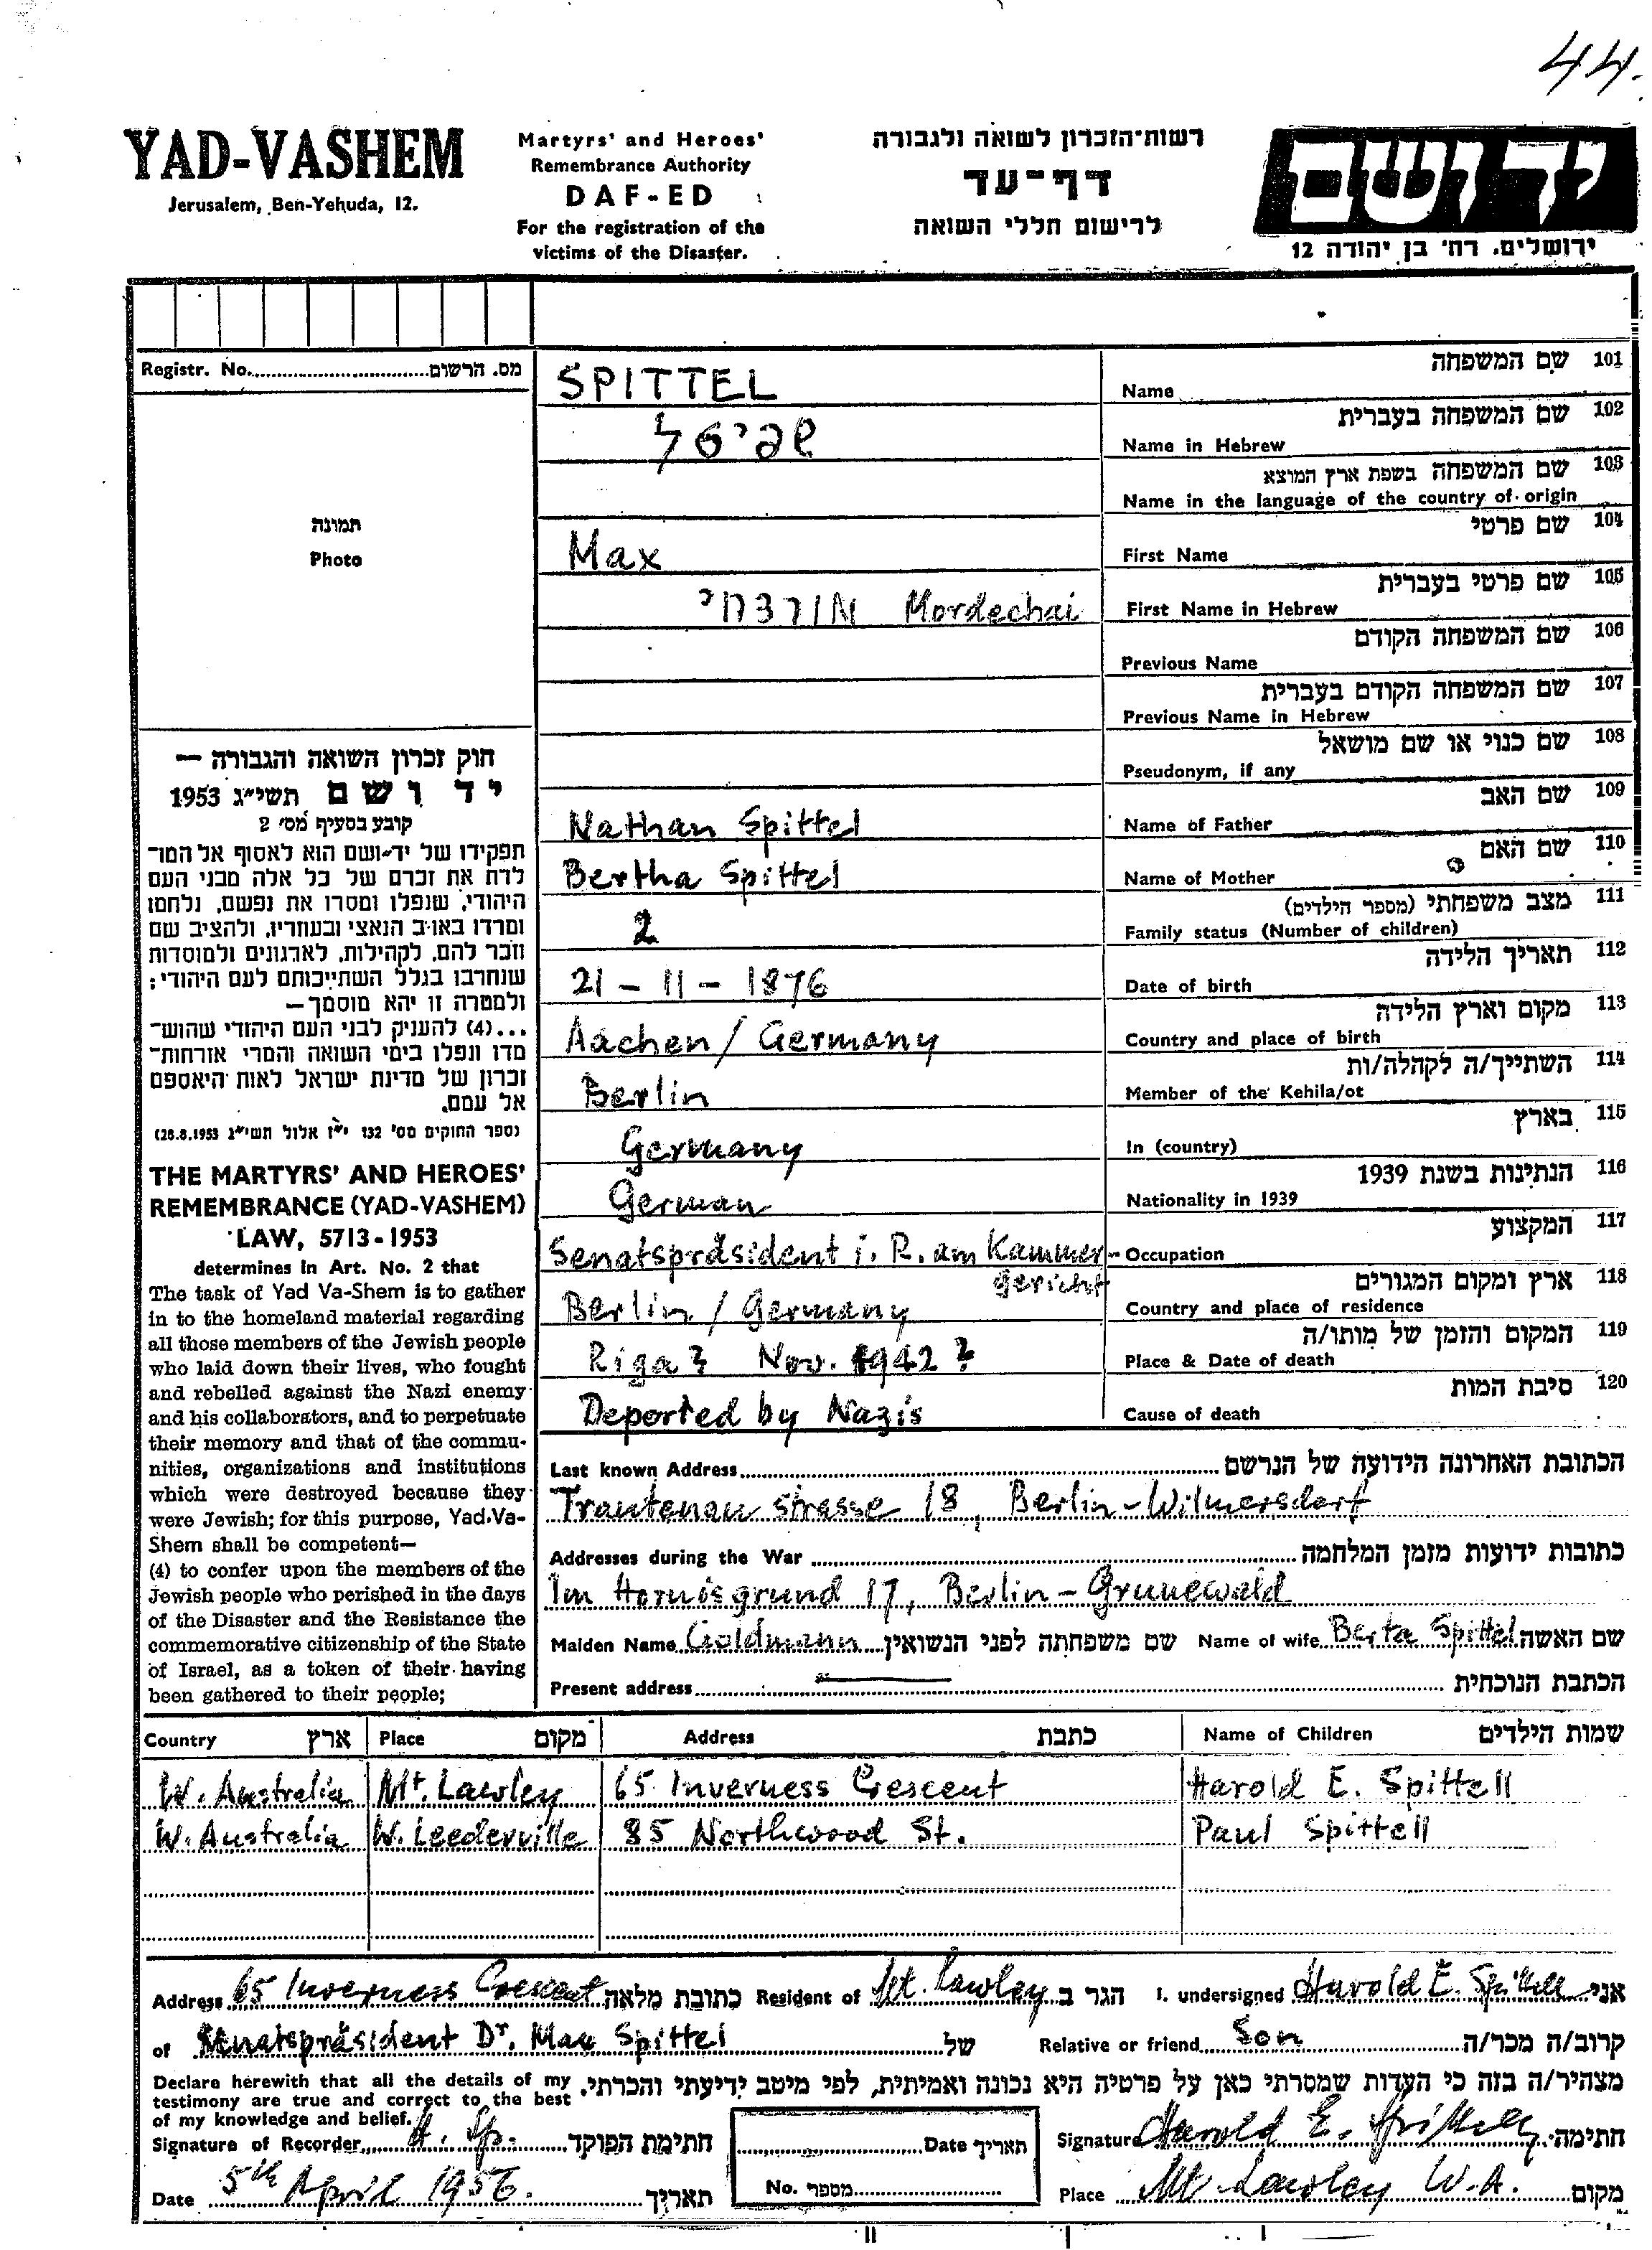 44.
YAD-VASHEM
Jerusalem, Ben-Yehuda, 12.
Martyrs' and Heroes'
Remembrance Authority
DAF-ED
For the registration of the
victims of the Disaster.
רשות־הזכרון לשואה ולגבורה
דף־עד
לרישום חללי השואה
יד ושם
ירושלים. רח' בן יהודה 12
Registr. No. מס. הרשום
תמונה
Photo
SPITTEL
Name שם המשפחה 101
שפיטל
Name in Hebrew שם המשפחה בעברית 102
שם המשפחה בשפת ארץ המוצא 103
Name in the language of the country of origin
Max
First Name שם פרטי 104
מורדחי Mordechai
First Name in Hebrew שם פרטי בעברית 105
Previous Name שם המשפחה הקודם 106
Previous Name in Hebrew שם המשפחה הקודם בעברית 107
Pseudonym, if any שם כנוי או שם מושאל 108
Nathan Spittel
Name of Father שם האב 109
Bertha Spittel
Name of Mother שם האם 110
2
Family status (Number of children) מצב משפחתי (מספר הילדים) 111
21 - 11 - 1876
Date of birth תאריך הלידה 112
Aachen / Germany
Country and place of birth מקום וארץ הלידה 113
Berlin
Member of the Kehila/ot השתייך/ה לקהלה/ות 114
Germany
In (country) בארץ 115
German
Nationality in 1939 הנתינות בשנת 1939 116
Senatspräsident i. R. am Kammer-
gericht
Occupation המקצוע 117
Berlin / Germany
Country and place of residence ארץ ומקום המגורים 118
Riga? Nov. 1942?
Place & Date of death המקום והזמן של מותו/ה 119
Deported by Nazis
Cause of death סיבת המות 120
חוק זכרון השואה והגבורה —
יד ושם תשי״ג 1953
קובע בסעיף מס׳ 2
תפקידו של יד־ושם הוא לאסוף אל המו־
לדת את זכרם של כל אלה מבני העם
היהודי, שנפלו ומסרו את נפשם, נלחמו
ומרדו באויב הנאצי ובעוזריו, ולהציב שם
וזכר להם, לקהילות, לארגונים ולמוסדות
שנחרבו בגלל השתייכותם לעם היהודי:
ולמטרה זו יהא מוסמך—
...(4) להעניק לבני העם היהודי שהוש־
מדו ונפלו בימי השואה והמרי אזרחות־
זכרון של מדינת ישראל לאות היאספם
אל עמם.
(ספר החוקים מס׳ 132 י״ז אלול תשי״ג 28.8.1953)
THE MARTYRS' AND HEROES'
REMEMBRANCE (YAD-VASHEM)
LAW, 5713-1953
determines in Art. No. 2 that
The task of Yad Va-Shem is to gather
in to the homeland material regarding
all those members of the Jewish people
who laid down their lives, who fought
and rebelled against the Nazi enemy
and his collaborators, and to perpetuate
their memory and that of the commu-
nities, organizations and institutions
which were destroyed because they
were Jewish; for this purpose, Yad-Va-
Shem shall be competent—
(4) to confer upon the members of the
Jewish people who perished in the days
of the Disaster and the Resistance the
commemorative citizenship of the State
of Israel, as a token of their having
been gathered to their people;
Last known Address הכתובת האחרונה הידועה של הנרשם
Trautenau strasse 18, Berlin-Wilmersdorf
Addresses during the War כתובות ידועות מזמן המלחמה
Im Hornisgrund 17, Berlin-Grunewald
Maiden Name Goldmann שם משפחתה לפני הנשואין Name of wife Berta Spittel שם האשה
Present address — הכתבת הנוכחית
Country ארץ Place מקום Address כתבת Name of Children שמות הילדים
W. Australia Mt. Lawley 65 Inverness Crescent Harold E. Spittell
W. Australia W. Leederville 85 Northwood St. Paul Spittell
Address 65 Inverness Crescent כתובת מלאה Resident of Mt. Lawley הגר ב I. undersigned Harold E. Spittell אני
of Senatspräsident Dr. Max Spittel של Relative or friend Son קרוב/ה מכר/ה
Declare herewith that all the details of my
testimony are true and correct to the best
of my knowledge and belief.
מצהיר/ה בזה כי העדות שמסרתי כאן על פרטיה היא נכונה ואמיתית, לפי מיטב ידיעתי והכרתי.
Signature of Recorder H. Sp. חתימת הפוקד
Date תאריך
No. מספר
Signature Harold E. Spittell חתימה
Date 5th April 1956. תאריך
Place Mt Lawley W.A. מקום